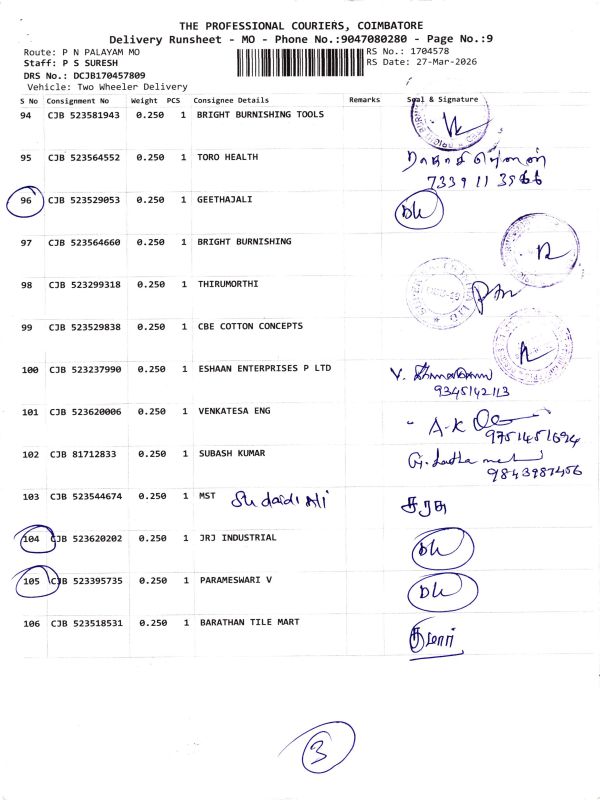 THE PROFESSIONAL COURIERS, COIMBATORE
Delivery Runsheet - MO - Phone No.:9047080280 - Page No.:9
Route: P N PALAYAM MO RS No.: 1704578
Staff: P S SURESH RS Date: 27-Mar-2026
DRS No.: DCJB170457809
Vehicle: Two Wheeler Delivery
S No Consignment No Weight PCS Consignee Details Remarks Seal & Signature
94 CJB 523581943 0.250 1 BRIGHT BURNISHING TOOLS
95 CJB 523564552 0.250 1 TORO HEALTH
96 CJB 523529053 0.250 1 GEETHAJALI
97 CJB 523564660 0.250 1 BRIGHT BURNISHING
98 CJB 523299318 0.250 1 THIRUMORTHI
99 CJB 523529838 0.250 1 CBE COTTON CONCEPTS
100 CJB 523237990 0.250 1 ESHAAN ENTERPRISES P LTD
9345142113
101 CJB 523620006 0.250 1 VENKATESA ENG A-K
9751451694
102 CJB 81712833 0.250 1 SUBASH KUMAR
9843987456
103 CJB 523544674 0.250 1 MST
104 CJB 523620202 0.250 1 JRJ INDUSTRIAL
105 CJB 523395735 0.250 1 PARAMESWARI V
106 CJB 523518531 0.250 1 BARATHAN TILE MART
3